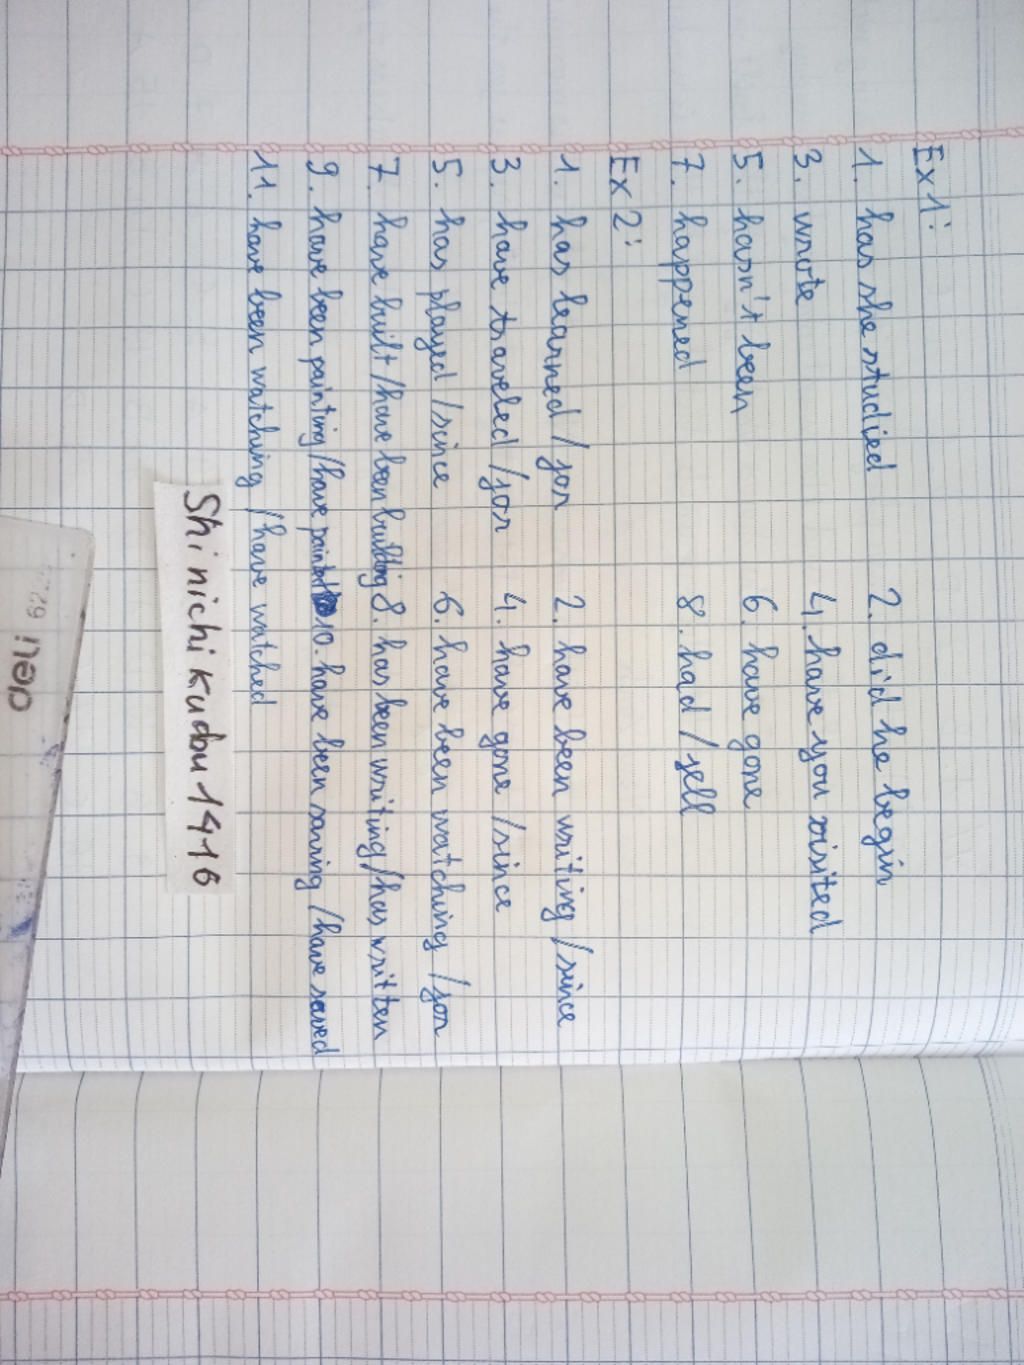 Ex 1:
1. has she studied 2. did he begin
3. wrote 4. have you visited
5. hasn't been 6. have gone
7. happened 8. had / fell
Ex 2:
1. has learned / for 2. have been writing / since
3. have traveled / for 4. have gone / since
5. has played / since 6. have been watching / for
7. have built / have been building 8. has been writing / has written
9. have been painting / have painted 10. have been saving / have saved
11. have been watching / have watched
Shinichikudou1416
deli